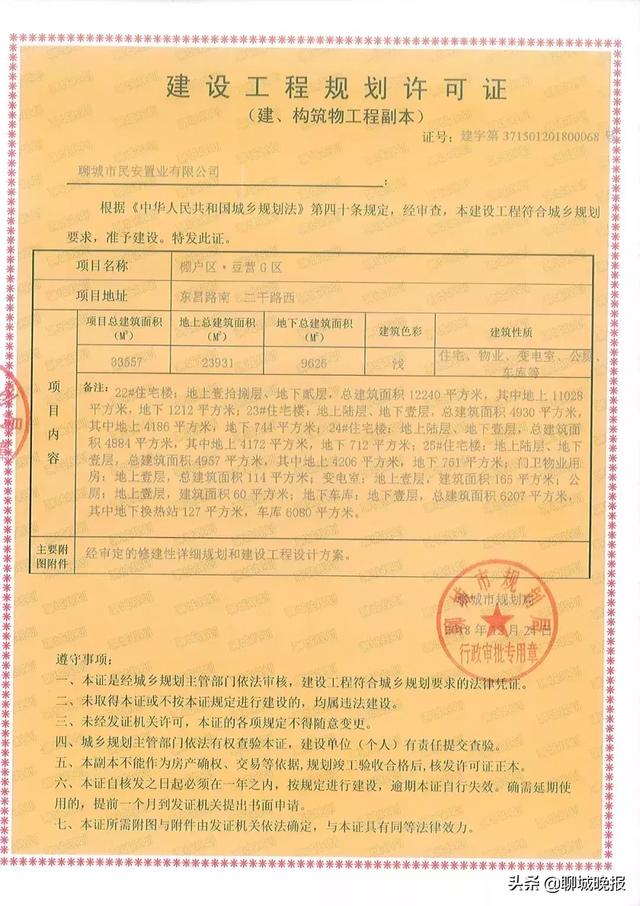 建设工程规划许可证
（建、构筑物工程副本）
证号：建字第 371501201800068 号
聊城市民安置业有限公司：
根据《中华人民共和国城乡规划法》第四十条规定，经审查，本建设工程符合城乡规划
要求，准予建设。特发此证。
项目名称 棚户区·豆营G区
项目地址 东昌路南 二干路西
项目总建筑面积（M²） 地上总建筑面积（M²） 地下总建筑面积（M²） 建筑色彩 建筑性质
33557 23931 9626 浅 住宅、物业、变电室、公厕、车库等
项目内容
备注：22#住宅楼：地上壹拾捌层、地下贰层，总建筑面积 12240 平方米，其中地上 11028
平方米，地下 1212 平方米；23#住宅楼：地上陆层、地下壹层，总建筑面积 4930 平方米，
其中地上 4186 平方米，地下 744 平方米；24#住宅楼：地上陆层、地下壹层，总建筑面积
4884 平方米，其中地上 4172 平方米，地下 712 平方米；25#住宅楼：地上陆层、地下
壹层，总建筑面积 4957 平方米，其中地上 4206 平方米，地下 751 平方米；门卫物业用
房：地上壹层，总建筑面积 114 平方米；变电室：地上壹层，建筑面积 165 平方米；公
厕：地上壹层，建筑面积 60 平方米；地下车库：地下壹层，总建筑面积 6207 平方米，
其中地下换热站 127 平方米，车库 6080 平方米。
主要附图附件 经审定的修建性详细规划和建设工程设计方案。
聊城市规划局
2018 年 12 月 21 日
行政审批专用章
遵守事项：
一、本证是经城乡规划主管部门依法审核，建设工程符合城乡规划要求的法律凭证。
二、未取得本证或不按本证规定进行建设的，均属违法建设。
三、未经发证机关许可，本证的各项规定不得随意变更。
四、城乡规划主管部门依法有权查验本证，建设单位（个人）有责任提交查验。
五、本副本不能作为房产确权、交易等依据，规划竣工验收合格后，核发许可证正本。
六、本证自核发之日起必须在一年之内，按规定进行建设，逾期本证自行失效。确需延期使
用的，提前一个月到发证机关提出书面申请。
七、本证所需附图与附件由发证机关依法确定，与本证具有同等法律效力。
头条 @聊城晚报